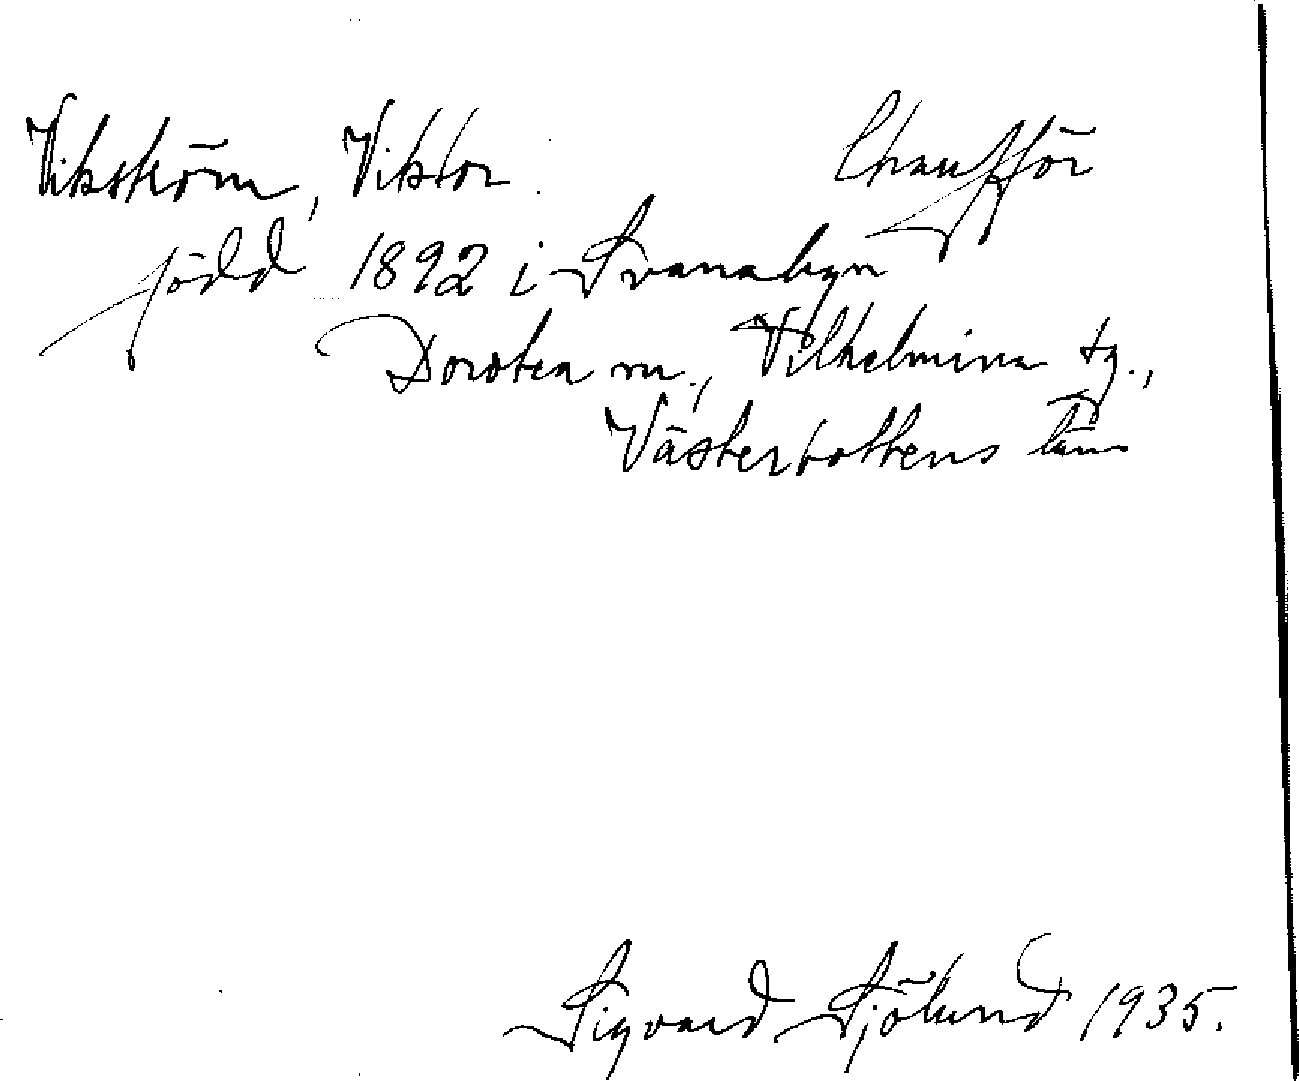 Vikström, Viktor. Chaufför
född 1892 i Svanabyn
Dorotea sn., Vilhelmina tg.,
Västerbottens län
Sigvard Sjölund 1935.